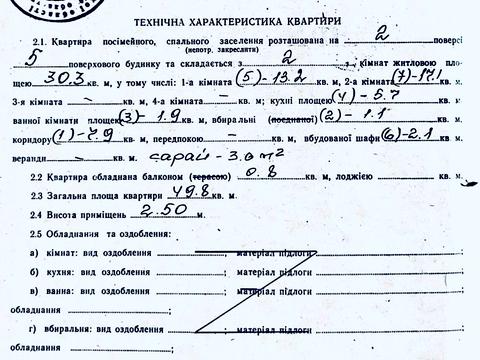 ТЕХНІЧНА ХАРАКТЕРИСТИКА КВАРТИРИ
2.1. Квартира посімейного, спального заселення розташована на 2 поверсі
(непотр. закреслити)
5 поверхового будинку та складається з 2 -х кімнат житловою пло-
щею 30.3 кв. м, у тому числі: 1-а кімната (5)-13.2 кв. м, 2-а кімната (7)-17.1 кв. м,
3-я кімната – кв. м, 4-а кімната – кв. м; кухні площею (4)-5.7 кв. м,
ванної кімнати площею (3)-1.9 кв. м, вбиральні (поєднаної) (2)-1.1 кв. м,
коридору (1)-7.9 кв. м, передпокою – кв. м, вбудованої шафи (6)-2.1 кв. м,
веранди – кв. м. сарай-3.0 м²
2.2 Квартира обладнана балконом (терасою) 0.8 кв. м, лоджією кв. м.
2.3 Загальна площа квартири 49.8 кв. м.
2.4 Висота приміщень 2.50 м.
2.5 Обладнання та оздоблення:
а) кімнат: вид оздоблення матеріал підлоги
б) кухня: вид оздоблення матеріал підлоги
в) ванна: вид оздоблення матеріал підлоги
обладнання
г) вбиральня: вид оздоблення матеріал підлоги
обладнання